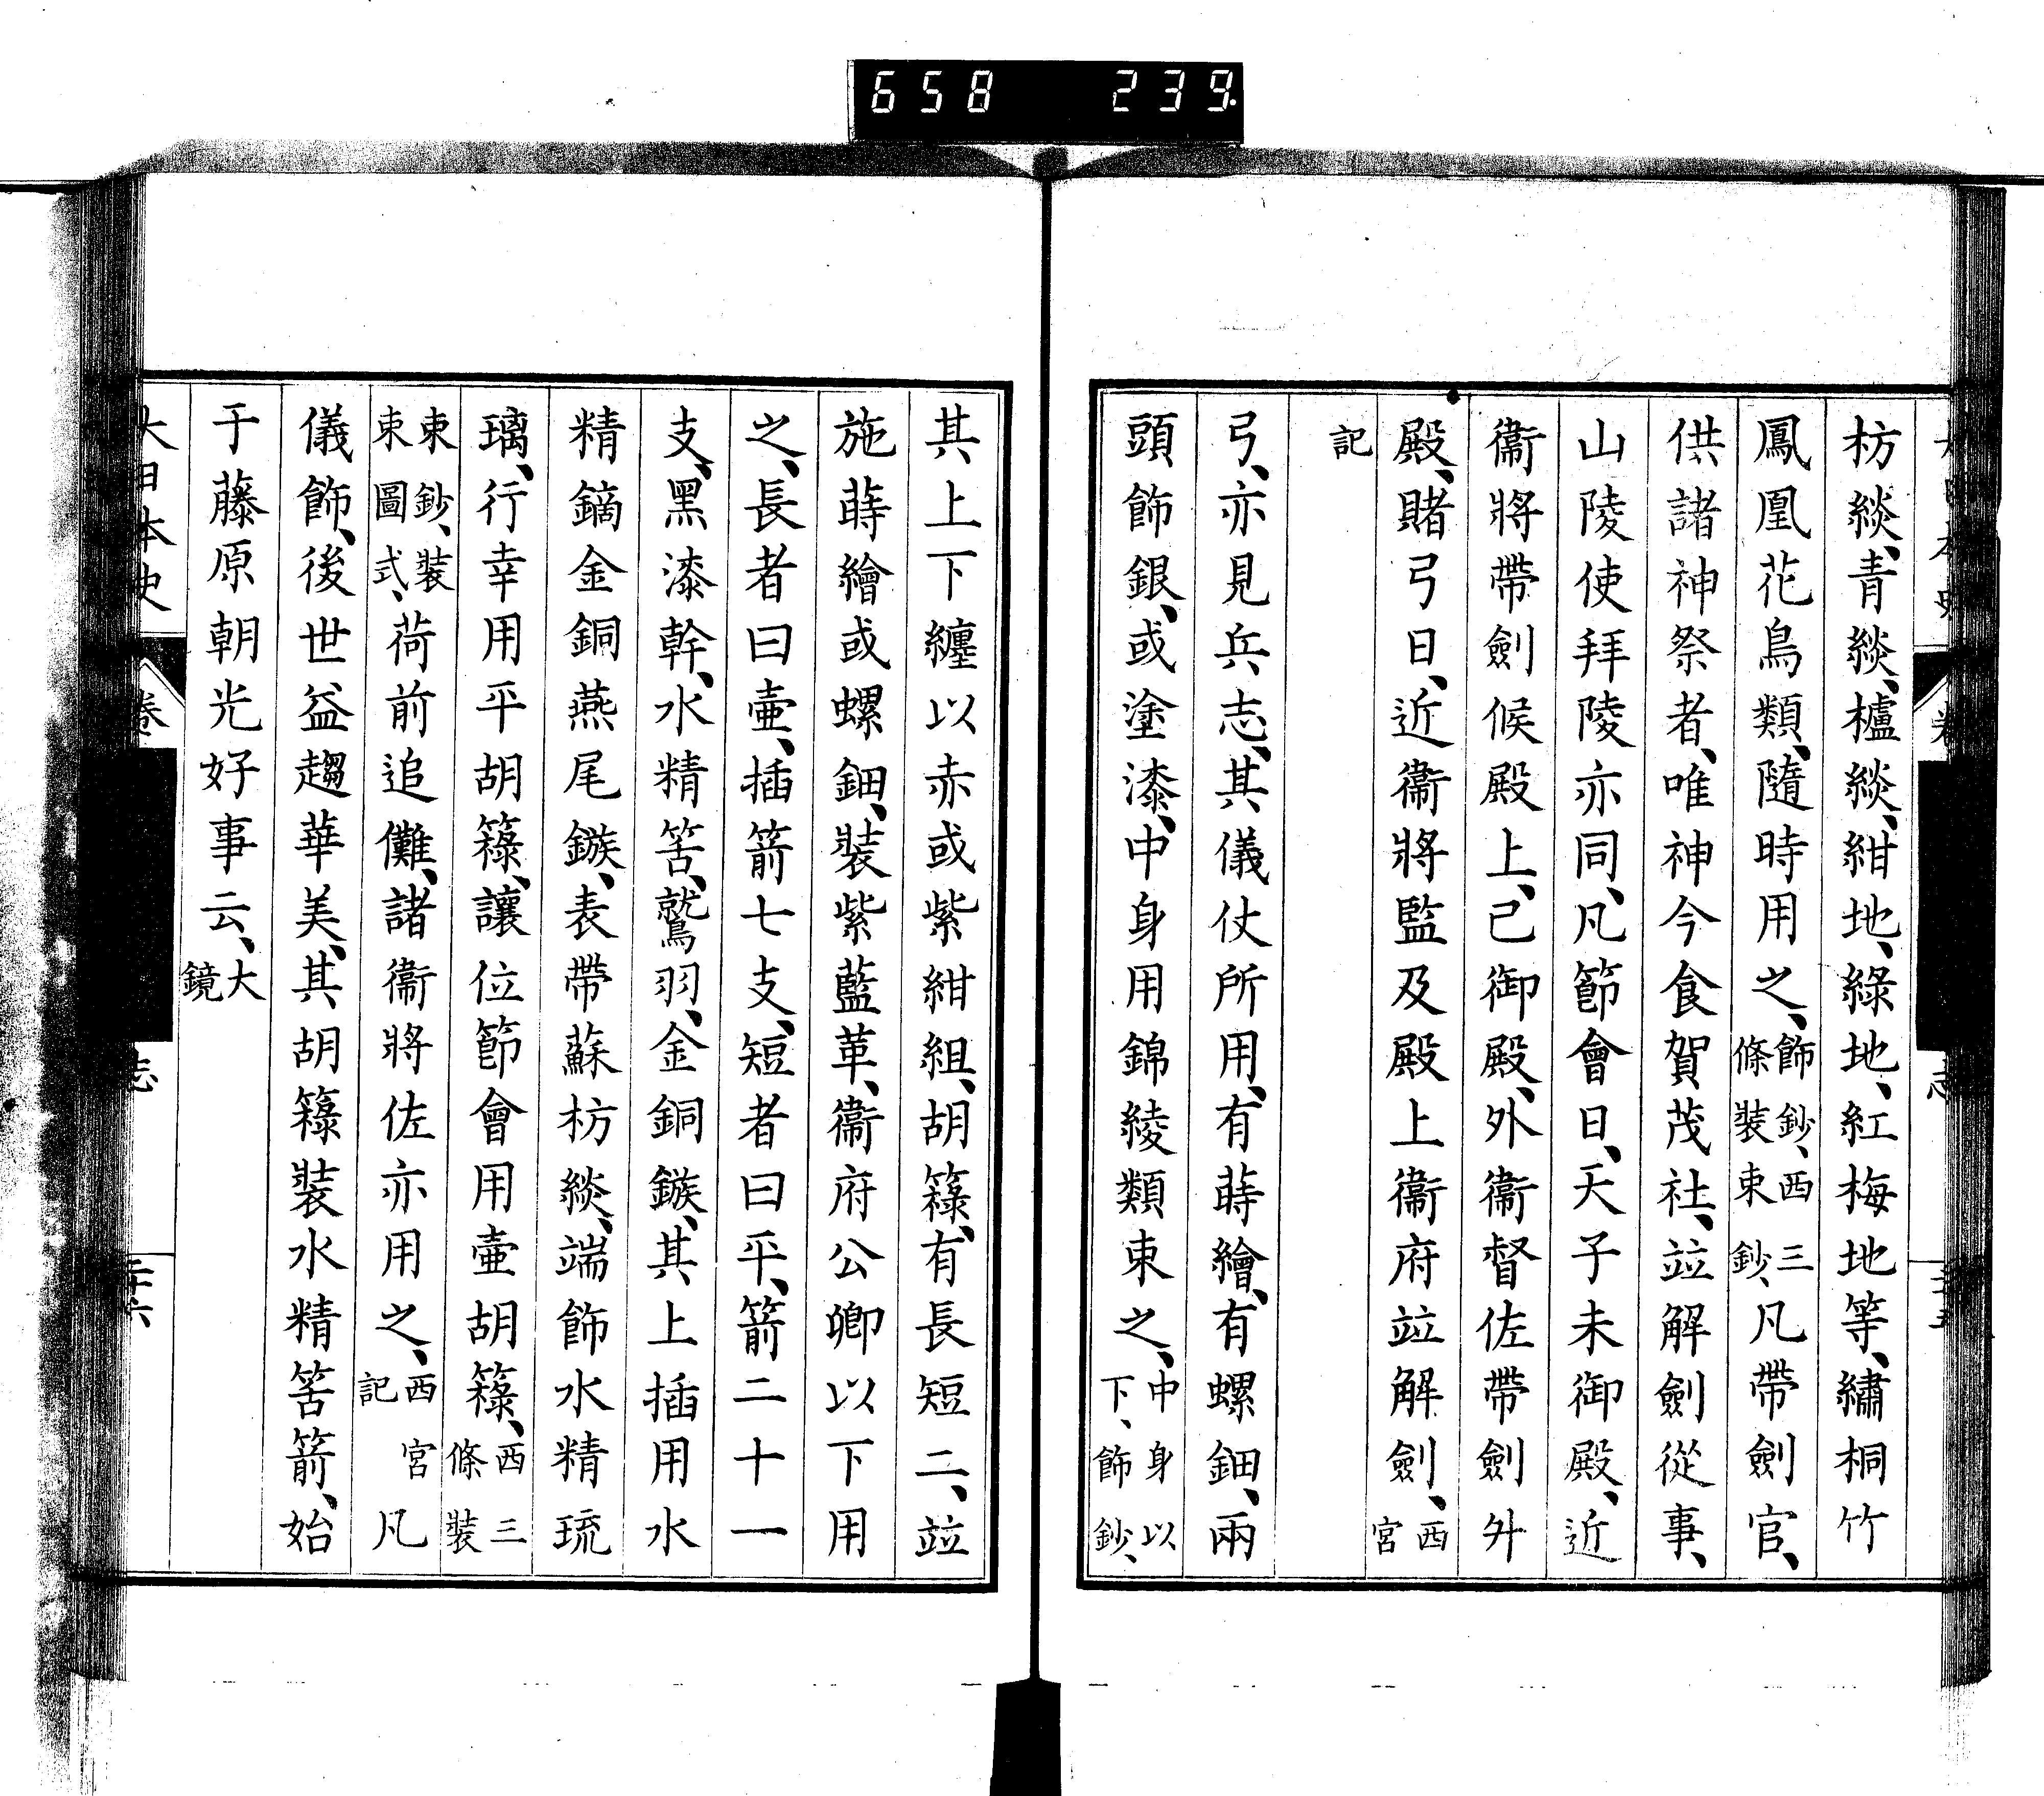 658 239
枋緂、青緂、櫨緂、紺地、綠地、紅梅地等、繡桐竹
鳳凰花鳥類、隨時用之、飾鈔、西三條裝束鈔、凡帶劍官、
供諸神祭者、唯神今食賀茂社、竝解劍從事、
山陵使拜陵亦同、凡節會日、天子未御殿、近
衞將帶劍候殿上、已御殿、外衞督佐帶劍外
殿、賭弓日、近衞將監及殿上衞府竝解劍、西宮
記
弓、亦見兵志、其儀仗所用、有蒔繪、有螺鈿、兩
頭飾銀、或塗漆、中身用錦綾類束之、中身以下、飾鈔、
其上下纏以赤或紫紺組、胡籙、有長短二、竝
施蒔繪或螺鈿、裝紫藍革、衞府公卿以下用
之、長者曰壷、插箭七支、短者曰平、箭二十一
支、黑漆幹、水精筈、鷲羽、金銅鏃、其上插用水
精鏑金銅燕尾鏃、表帶蘇枋緂、端飾水精琉
璃、行幸用平胡籙、讓位節會用壷胡籙、西三條裝
束鈔、裝束圖式、荷前追儺、諸衞將佐亦用之、西宮記凡
儀飾、後世益趨華美、其胡籙裝水精筈箭、始
于藤原朝光好事云、大鏡
大日本史 卷 志 二十六